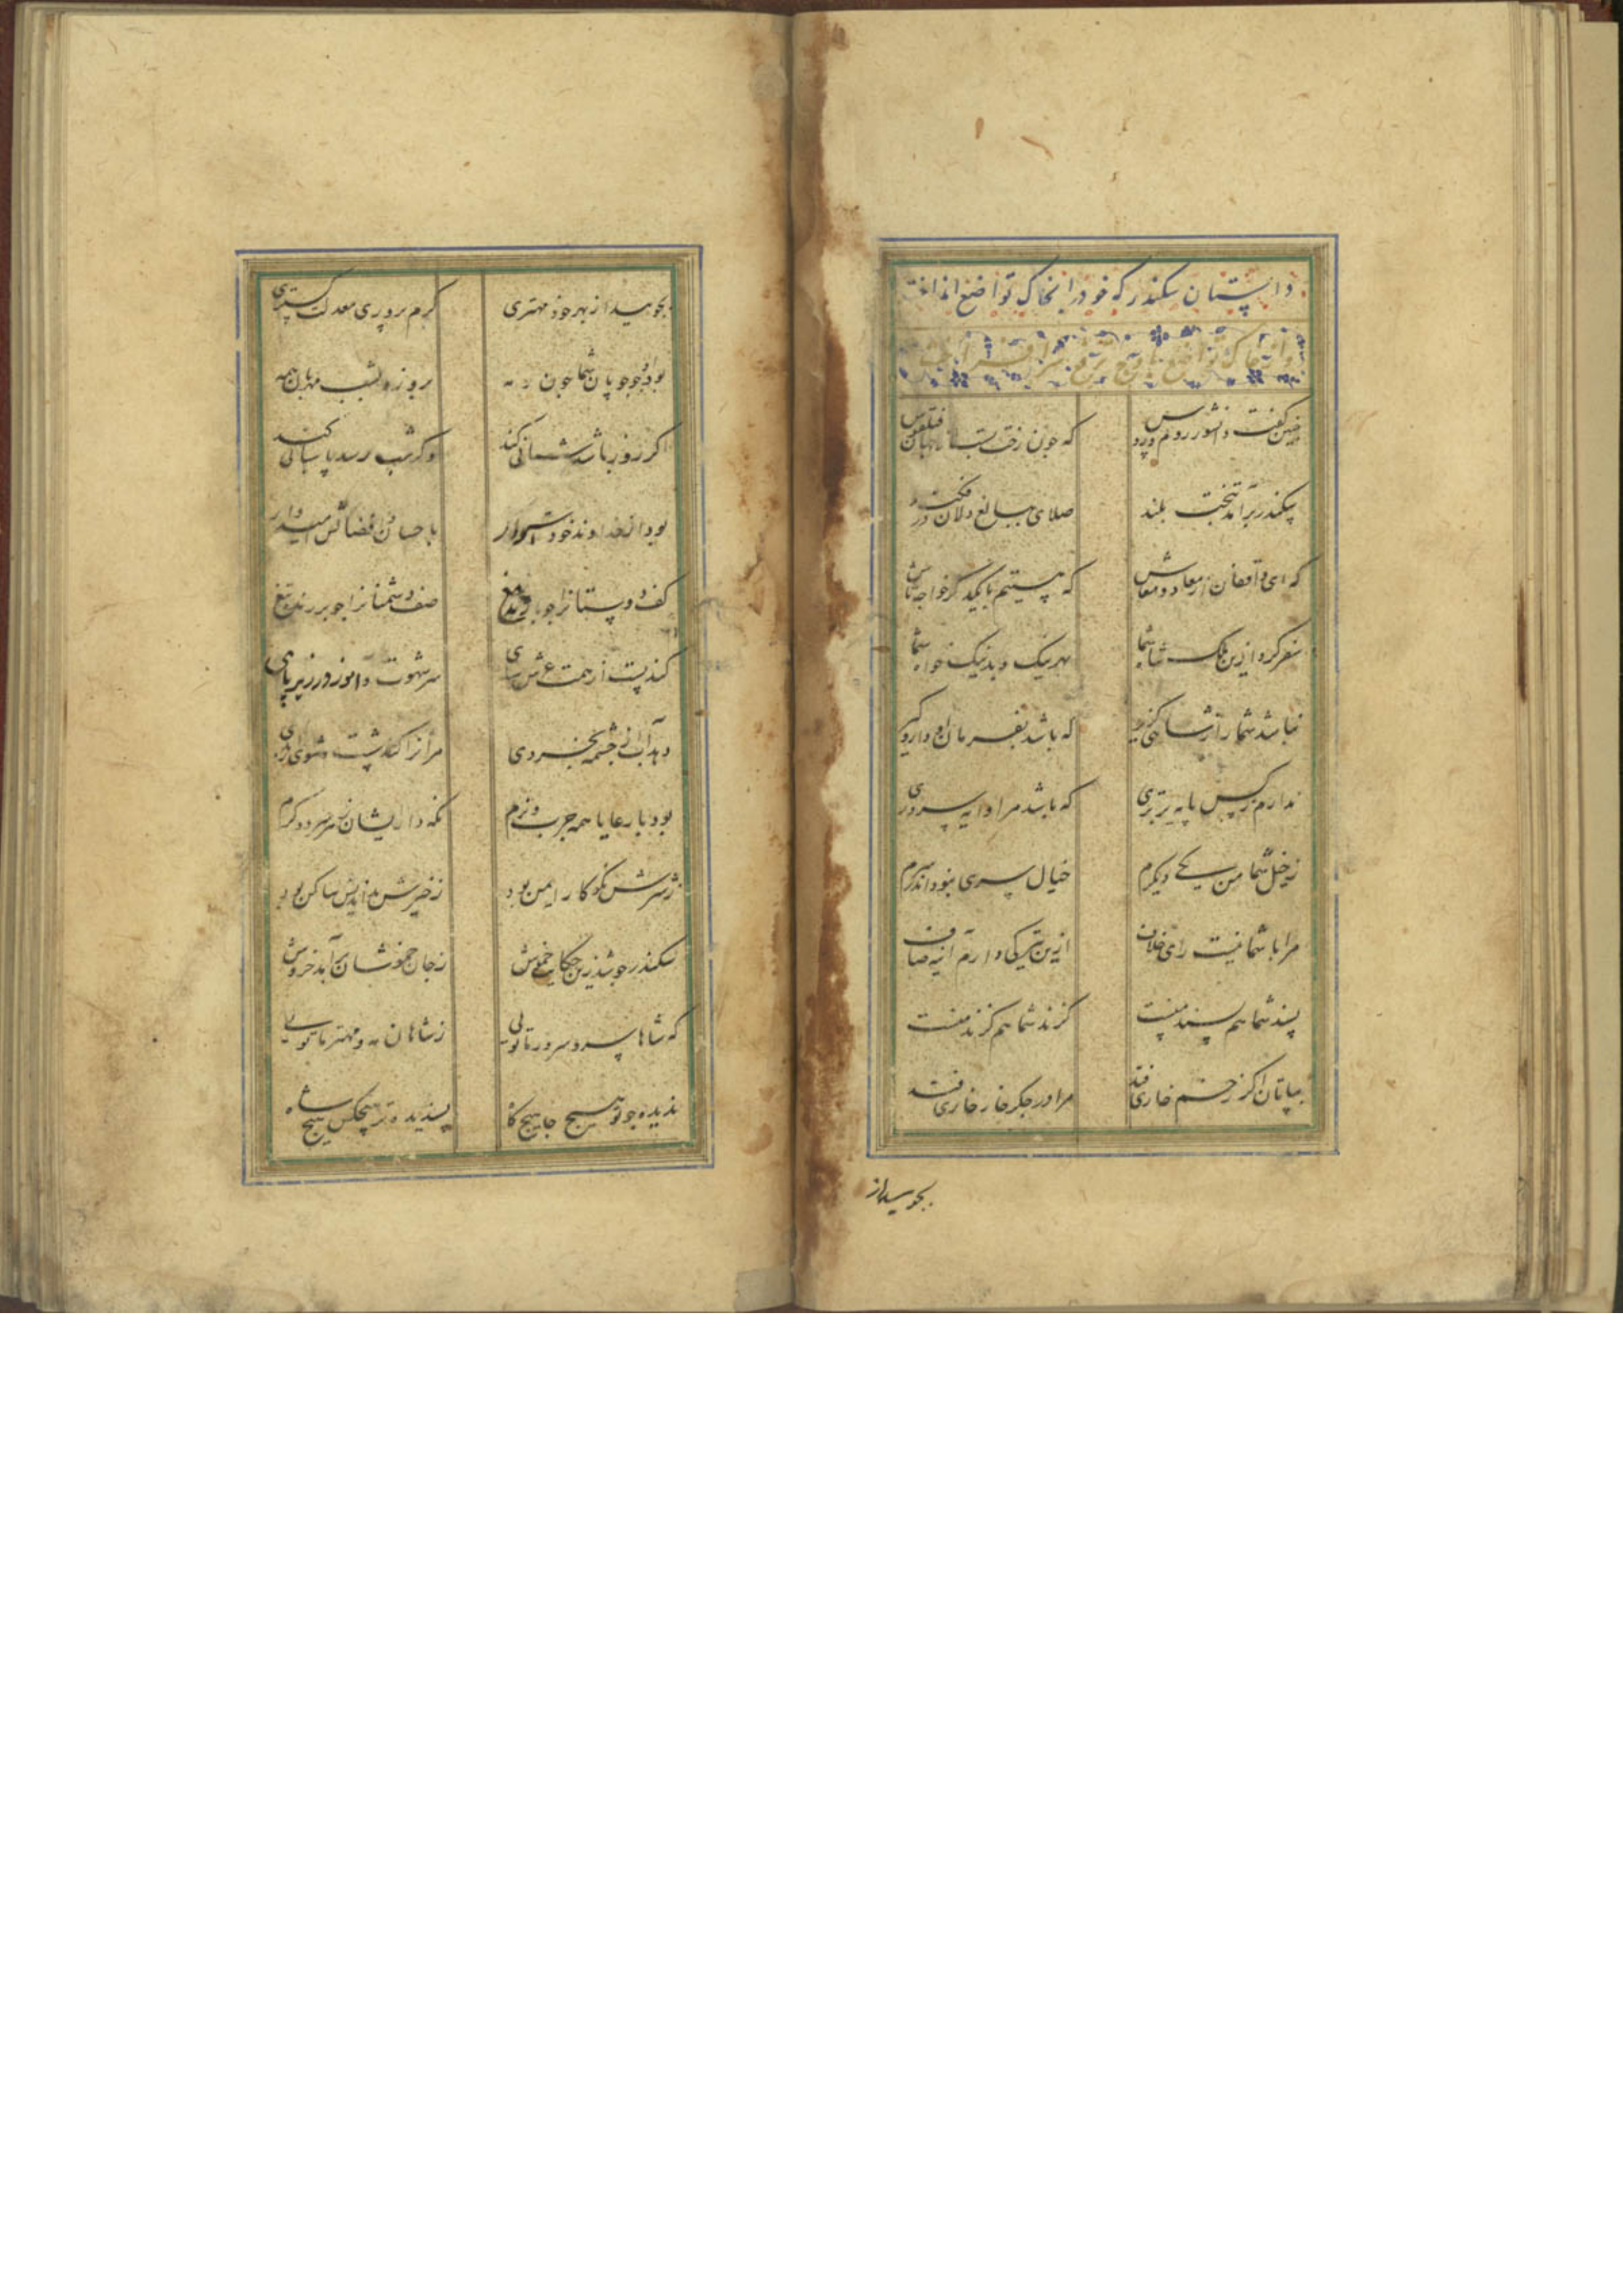 داستان سکندر که خود را بخاک تواضع انداخت
و از خاک تواضع باوج ترفع سر افراخت
چنین گفت دانشور روم و روس
که چون رخت بست از جهان فیلقوس
سکندر برآمد بتخت بلند
صلای ببالغ دلان درفکند
که ای واقفان از معاد و معاش
که هستیم با یکدگر خواجه‌تاش
سفر کرد ازین ملک شاه شما
بهر نیک و بد نیک خواه شما
نباشد شما را ز شاهی گزیر
که باشد بفرمان او دار و گیر
ندارم ز کس پایه برتری
که باشد مرا دایه سروری
ز خیل شما من یکی دیگرم
خیال سری نبود اندر سرم
مرا با شما نیست رای خلاف
ازین تیرگی دارم آیینه صاف
پسند شما هم پسند منست
گزند شما هم گزند منست
بپاتان اگر زخم خاری فتد
مرا در جگر خار خاری فتد
بجویید از
بجویید از بهر خود مهتری
کرم پروری معدلت گستری
بود او چو چوپان شما چون رمه
بروز و بشب مهربان همه
گر روز باشد شبانی کند
وگر شب رسد پاسبانی کند
بود از خداوند خود شرمسار
باحسان و افضالش امیدوار
کف دوستانرا چو بارنده میغ
صف دشمنانرا چو برنده تیغ
کند پست از همت عرش سای
سر شهوت و آز در زیر پای
دهد آب از چشمه بخردی
مر آنرا کند شست و شوی از بدی
بود با رعایا همه چرب و نرم
نگه داردیشان ز هر سرد و گرم
ز شرش نکوکار ایمن بود
ز خیرش بداندیش ساکن بود
سکندر چو شد زین حکایت خموش
ز جان خموشان برآمد خروش
که شاها سر و سرور ما تویی
ز شاهان مه و مهتر ما تویی
ندیده چو تو هیچ جا هیچگاه
پسندیده‌تر هیچکس هیچ شاه